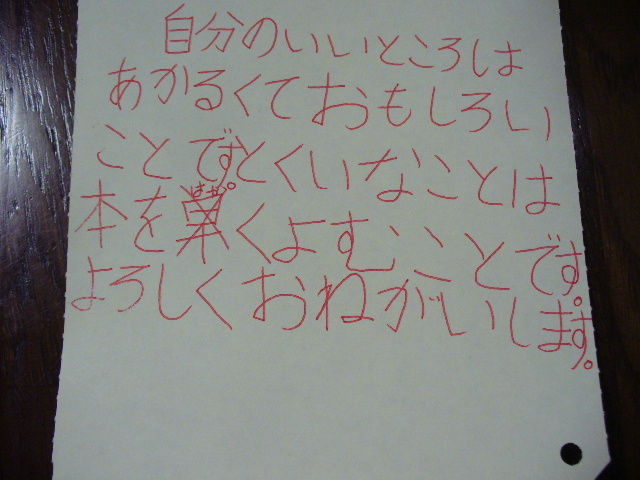 自分のいいところは
あかるくておもしろい
ことです。とくいなことは
本をはやくよむことです。
よろしくおねがいします。